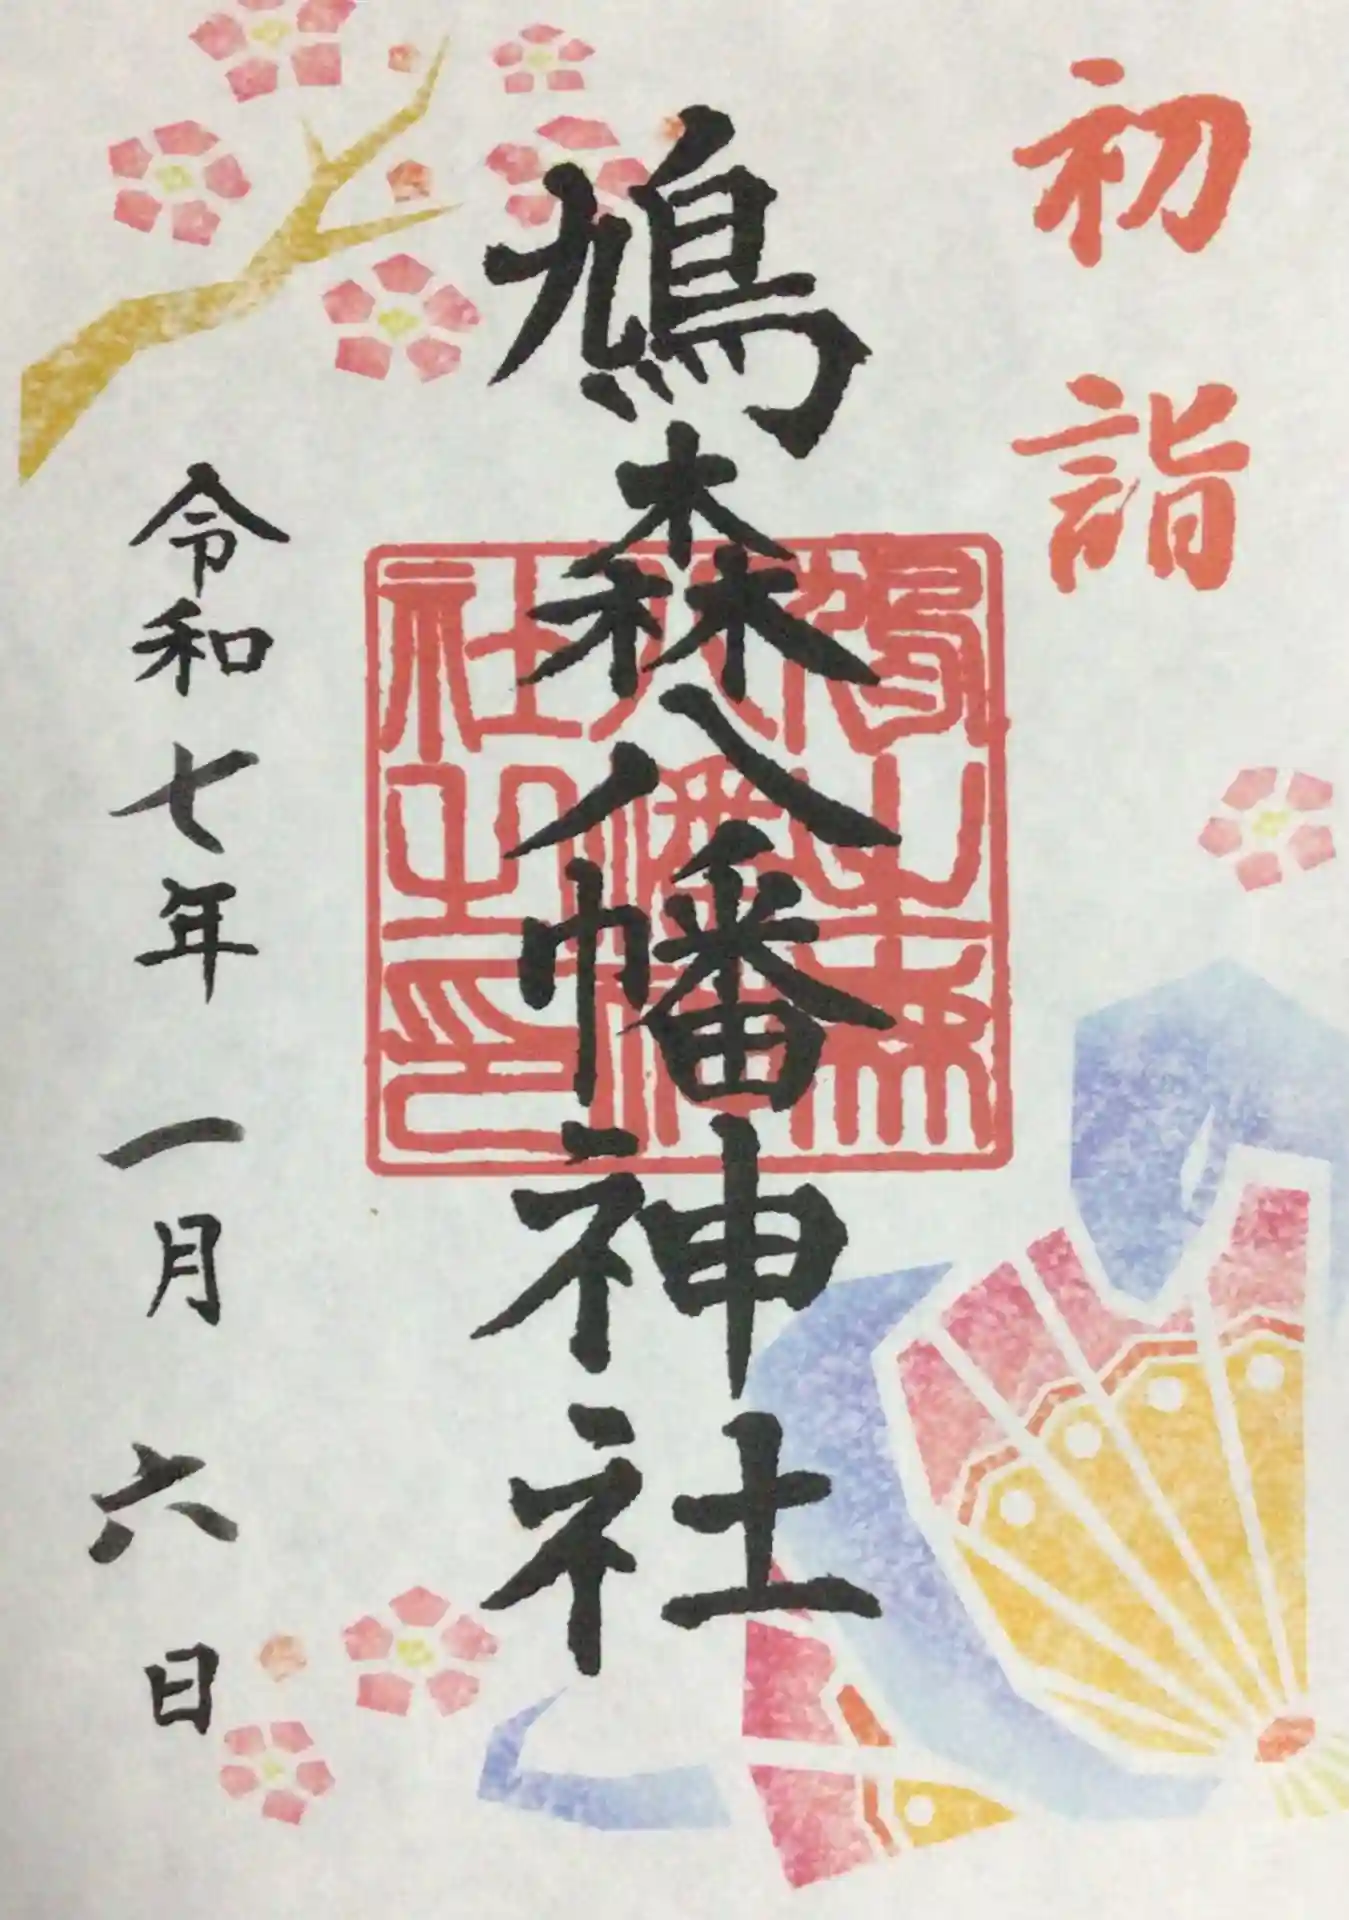 初詣
鳩森八幡神社
鳩之森
八幡神
社之印
令和七年一月六日